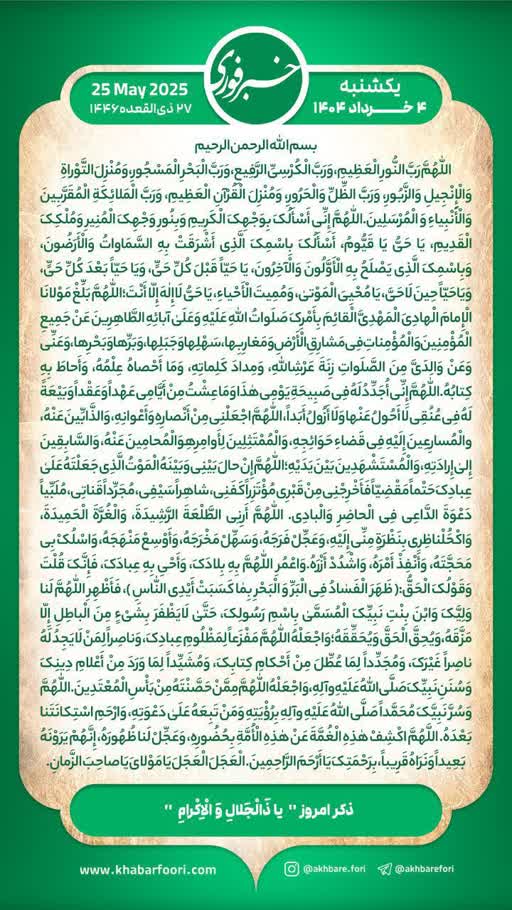 خبرفوری
یکشنبه
۴ خـــرداد ۱۴۰۴
25 May 2025
۲۷ ذی‌القعده ۱۴۴۶
بسم الله الرحمن الرحیم
اللهُمَّ رَبَّ النُّورِ الْعَظِیمِ، وَرَبَّ الْکُرْسِیِّ الرَّفِیعِ، وَرَبَّ الْبَحْرِ الْمَسْجُورِ، وَمُنْزِلَ التَّوْراةِ
وَالْإِنْجِیلِ وَالزَّبُورِ، وَرَبَّ الظِّلِّ وَالْحَرُورِ، وَمُنْزِلَ الْقُرْآنِ الْعَظِیمِ، وَرَبَّ الْمَلائِکَةِ الْمُقَرَّبِینَ
وَالْأَنْبِیاءِ وَ الْمُرْسَلِینَ. اللهُمَّ إِنِّی أَسْأَلُکَ بِوَجْهِکَ الْکَرِیمِ وَبِنُورِ وَجْهِکَ الْمُنِیرِ وَمُلْکِکَ
الْقَدِیمِ، یَا حَیُّ یَا قَیُّومُ، أَسْأَلُکَ بِاسْمِکَ الَّذِی أَشْرَقَتْ بِهِ السَّمَاوَاتُ وَالْأَرَضُونَ،
وَبِاسْمِکَ الَّذِی یَصْلَحُ بِهِ الْأَوَّلُونَ وَالْآخِرُونَ، یَا حَیّاً قَبْلَ کُلِّ حَیٍّ، وَیَا حَیّاً بَعْدَ کُلِّ حَیٍّ،
وَیَا حَیّاً حِینَ لَا حَیَّ، یَا مُحْیِیَ الْمَوْتیٰ، وَمُمِیتَ الْأَحْیاءِ، یَا حَیُّ لَا إِلٰهَ إِلّا أَنْتَ؛ اللهُمَّ بَلِّغْ مَوْلانَا
الْإِمامَ الْهادِیَ الْمَهْدِیَّ الْقائِمَ بِأَمْرِکَ صَلَواتُ اللهِ عَلَیْهِ وَعَلَیٰ آبائِهِ الطَّاهِرِینَ عَنْ جَمِیعِ
الْمُؤْمِنِینَ وَالْمُؤْمِناتِ فِی مَشارِقِ الْأَرْضِ وَمَغارِبِها، سَهْلِها وَجَبَلِها، وَبَرِّها وَبَحْرِها، وَعَنِّی
وَعَنْ وَالِدَیَّ مِنَ الصَّلَواتِ زِنَةَ عَرْشِ اللهِ، وَمِدادَ کَلِماتِهِ، وَمَا أَحْصاهُ عِلْمُهُ، وَأَحَاطَ بِهِ
کِتابُهُ. اللهُمَّ إِنِّی أُجَدِّدُ لَهُ فِی صَبِیحَةِ یَوْمِی هٰذا وَمَا عِشْتُ مِنْ أَیَّامِی عَهْداً وَعَقْداً وَبَیْعَةً
لَهُ فِی عُنُقِی لَا أَحُولُ عَنْها وَلَا أَزُولُ أَبَداً، اللهُمَّ اجْعَلْنِی مِنْ أَنْصارِهِ وَأَعْوانِهِ، وَالذَّابِّینَ عَنْهُ،
وَالْمُسارِعِینَ إِلَیْهِ فِی قَضاءِ حَوَائِجِهِ، وَالْمُمْتَثِلِینَ لِأَوامِرِهِ وَالْمُحامِینَ عَنْهُ، وَالسَّابِقِینَ
إِلیٰ إِرادَتِهِ، وَالْمُسْتَشْهَدِینَ بَیْنَ یَدَیْهِ؛ اللهُمَّ إِنْ حالَ بَیْنِی وَبَیْنَهُ الْمَوْتُ الَّذِی جَعَلْتَهُ عَلیٰ
عِبادِکَ حَتْماً مَقْضِیّاً فَأَخْرِجْنِی مِنْ قَبْرِی مُؤْتَزِراً کَفَنِی، شاهِراً سَیْفِی، مُجَرِّداً قَناتِی، مُلَبِّیاً
دَعْوَةَ الدَّاعِی فِی الْحاضِرِ وَالْبادِی. اللهُمَّ أَرِنِی الطَّلْعَةَ الرَّشِیدَةَ، وَالْغُرَّةَ الْحَمِیدَةَ،
وَاکْحُلْ ناظِرِی بِنَظْرَةٍ مِنِّی إِلَیْهِ، وَعَجِّلْ فَرَجَهُ، وَسَهِّلْ مَخْرَجَهُ، وَأَوْسِعْ مَنْهَجَهُ، وَاسْلُکْ بِی
مَحَجَّتَهُ، وَأَنْفِذْ أَمْرَهُ، وَاشْدُدْ أَزْرَهُ. وَاعْمُرِ اللهُمَّ بِهِ بِلادَکَ، وَأَحْیِ بِهِ عِبادَکَ، فَإِنَّکَ قُلْتَ
وَقَوْلُکَ الْحَقُّ: (ظَهَرَ الْفَسَادُ فِی الْبَرِّ وَ الْبَحْرِ بِمَا کَسَبَتْ أَیْدِی النَّاسِ)، فَأَظْهِرِ اللهُمَّ لَنا
وَلِیَّکَ وَابْنَ بِنْتِ نَبِیِّکَ الْمُسَمَّیٰ بِاسْمِ رَسُولِکَ، حَتَّیٰ لَا یَظْفَرَ بِشَیْءٍ مِنَ الْباطِلِ إِلّا
مَزَّقَهُ، وَیُحِقَّ الْحَقَّ وَیُحَقِّقَهُ؛ وَاجْعَلْهُ اللهُمَّ مَفْزَعاً لِمَظْلُومِ عِبادِکَ، وَناصِراً لِمَنْ لَا یَجِدُ لَهُ
ناصِراً غَیْرَکَ، وَمُجَدِّداً لِمَا عُطِّلَ مِنْ أَحْکامِ کِتابِکَ، وَمُشَیِّداً لِمَا وَرَدَ مِنْ أَعْلامِ دِینِکَ
وَسُنَنِ نَبِیِّکَ صَلَّی اللهُ عَلَیْهِ وَآلِهِ، وَاجْعَلْهُ اللهُمَّ مِمَّنْ حَصَّنْتَهُ مِنْ بَأْسِ الْمُعْتَدِینَ. اللهُمَّ
وَسُرَّ نَبِیَّکَ مُحَمَّداً صَلَّی اللهُ عَلَیْهِ وَآلِهِ بِرُؤْیَتِهِ وَمَنْ تَبِعَهُ عَلَیٰ دَعْوَتِهِ، وَارْحَمِ اسْتِکانَتَنا
بَعْدَهُ. اللهُمَّ اکْشِفْ هٰذِهِ الْغُمَّةَ عَنْ هٰذِهِ الْأُمَّةِ بِحُضُورِهِ، وَعَجِّلْ لَنا ظُهُورَهُ، إِنَّهُمْ یَرَوْنَهُ
بَعِیداً وَنَرَاهُ قَرِیباً، بِرَحْمَتِکَ یَا أَرْحَمَ الرَّاحِمِینَ. الْعَجَلَ الْعَجَلَ یَا مَوْلایَ یَا صاحِبَ الزَّمانِ.
ذکر امروز " یا ذَالْجَلالِ وَ الْاِکْرامِ "
www.khabarfoori.com @akhbare.fori @akhbarefori